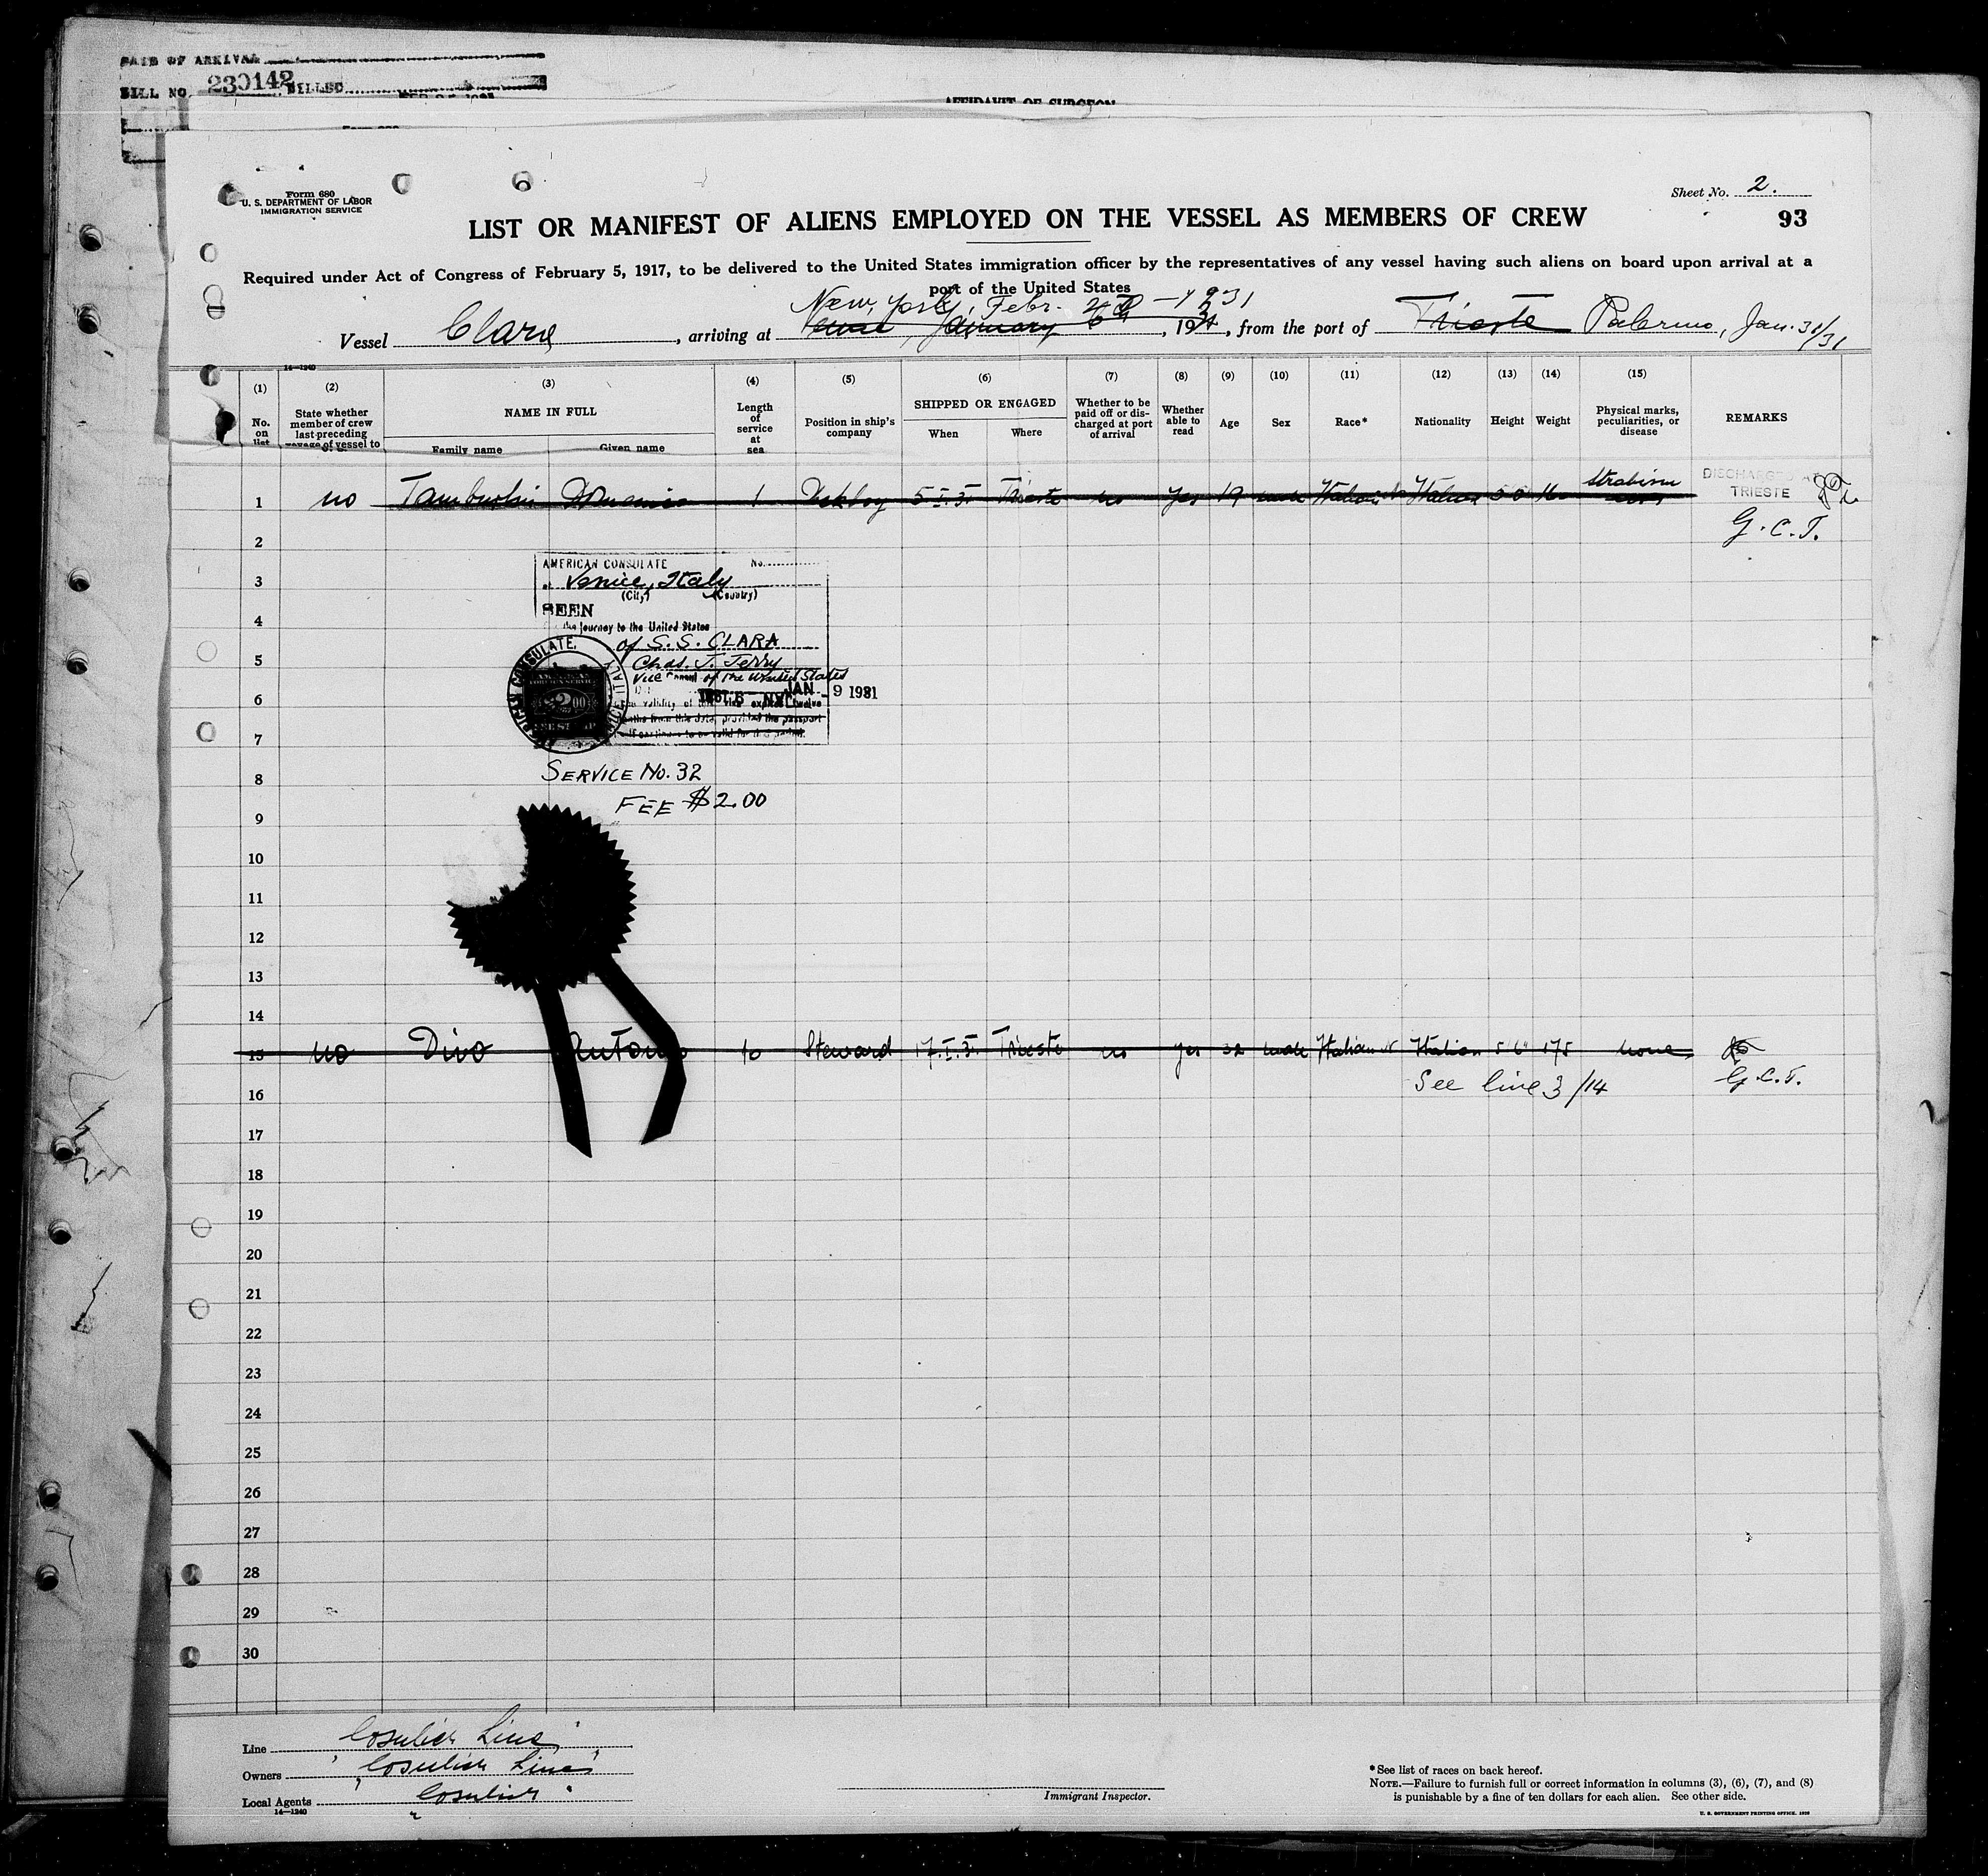 DATE OF ARRIVAL
BILL NO. 230142 BILLED
AFFIDAVIT OF SURGEON
Form 680
U. S. DEPARTMENT OF LABOR
IMMIGRATION SERVICE
Sheet No. 2.
LIST OR MANIFEST OF ALIENS EMPLOYED ON THE VESSEL AS MEMBERS OF CREW
93
Required under Act of Congress of February 5, 1917, to be delivered to the United States immigration officer by the representatives of any vessel having such aliens on board upon arrival at a
port of the United States
New York, Febr. 1931
Vessel Clara, arriving at January 6th, 193, from the port of Trieste Palermo, Jan. 31/31
14—1240
(1) (2) (3) (4) (5) (6) (7) (8) (9) (10) (11) (12) (13) (14) (15)
No. on list
State whether member of crew last preceding voyage of vessel to U. S.
NAME IN FULL
Family name Given name
Length of service at sea
Position in ship's company
SHIPPED OR ENGAGED
When Where
Whether to be paid off or discharged at port of arrival
Whether able to read
Age
Sex
Race*
Nationality
Height
Weight
Physical marks, peculiarities, or disease
REMARKS
Strabism
DISCHARGED AT
TRIESTE
1 no Domenico 1 Dekboy 5.I.31 Trieste no yes 19 male Italian Italian
G.C.T.
2
3
4
5
6
7
8
9
10
11
12
13
14
AMERICAN CONSULATE No.
Venice, Italy
(City) (Country)
SEEN
the journey to the United States
of S.S. CLARA
Chas. J. Terry
Vice Consul of the United States
JAN - 9 1931
AMERICAN CONSULATE. VENICE ITALY
$2.00
SERVICE NO. 32
FEE $2.00
15 no Divo Antonio 10 Steward 17.I.31 Trieste no yes 32 male Italian N Italian 5'6" 175 none
See line 3/14
G.C.T.
16
17
18
19
20
21
22
23
24
25
26
27
28
29
30
Line Cosulich Line
Owners "Cosulich Line"
Local Agents "Cosulich"
14—1240
Immigrant Inspector.
* See list of races on back hereof.
NOTE.—Failure to furnish full or correct information in columns (3), (6), (7), and (8)
is punishable by a fine of ten dollars for each alien. See other side.